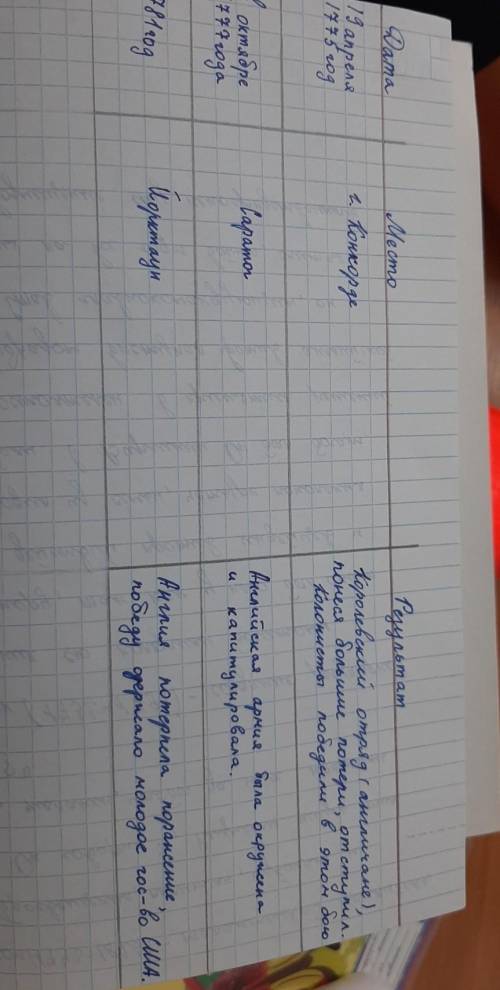 Дата Место Результат
19 апреля г. Конкорде Королевский отряд (англичане),
1775 год понеся большие потери, отступил.
Колонисты победили в этом бою
октябре Саратог Английская армия была окружена
777 года и капитулировала.
781 год Йорктаун Англия потерпела поражение,
победу одержало молодое гос-во США.